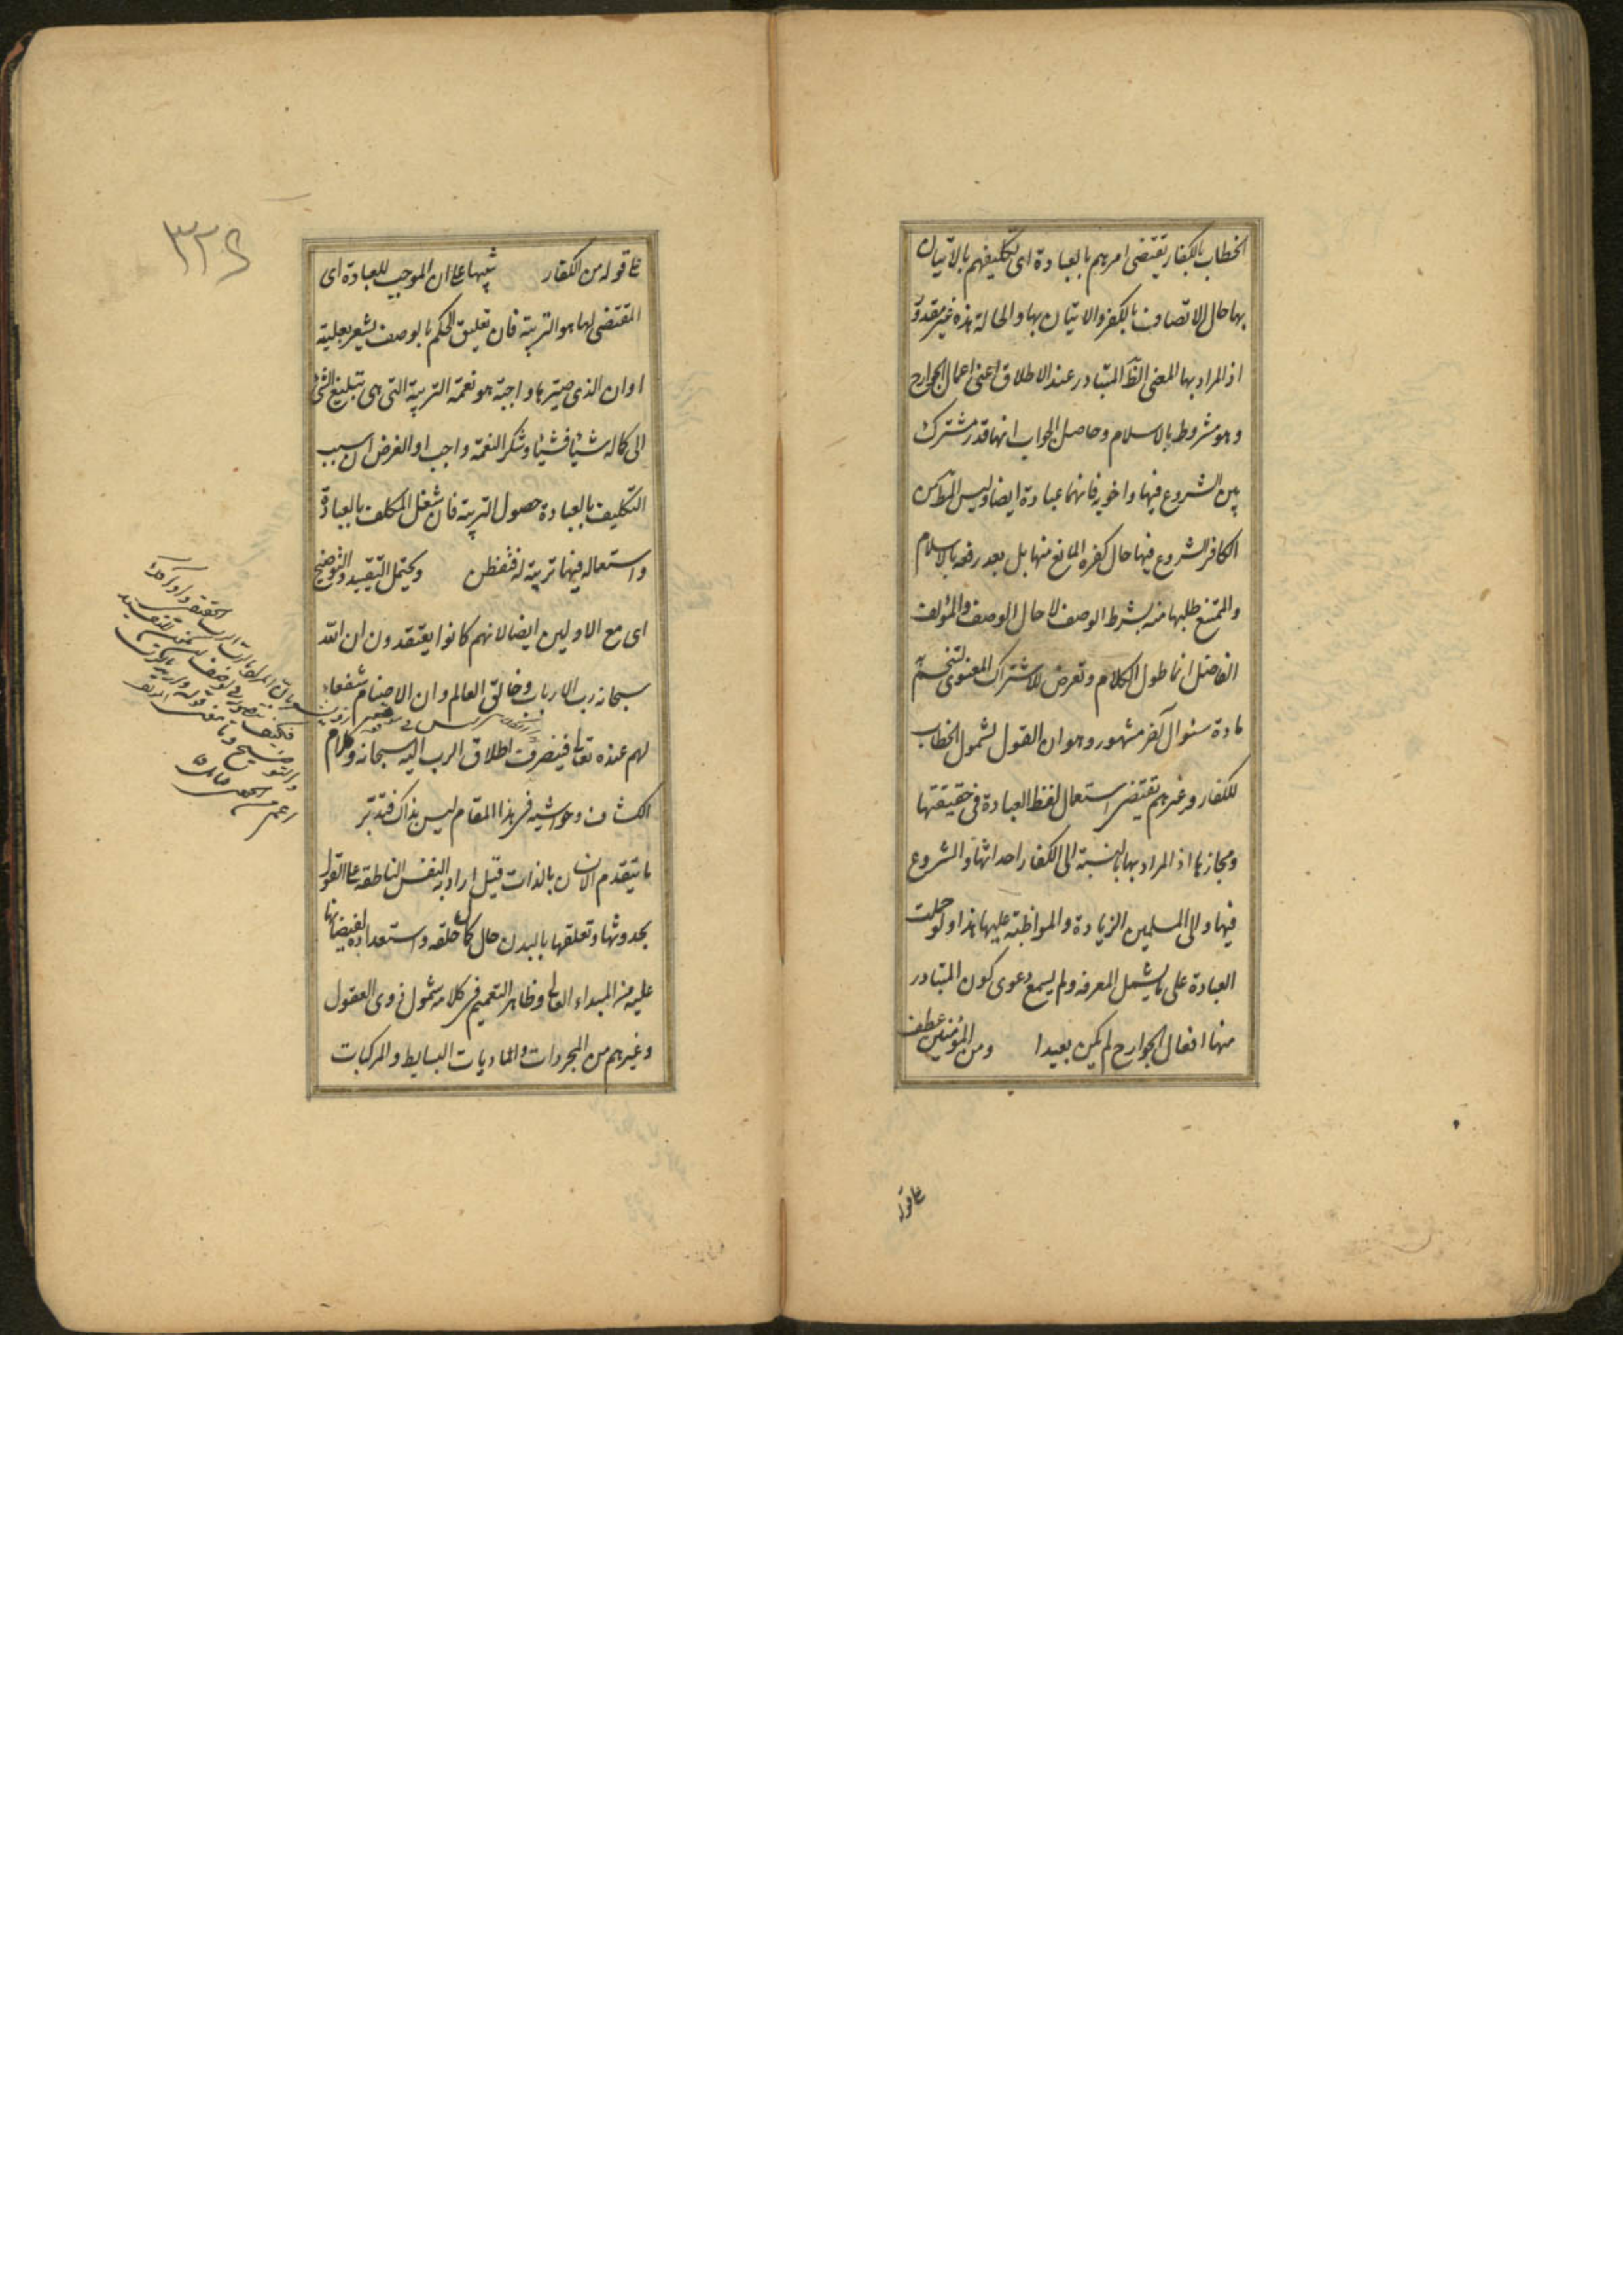 الخطاب بالكفار يقتضى امرهم بالعبادة اى تكليفهم بالاتيان
بها حال الاتصاف بالكفر والاتيان بها والحالة هذه غير مقدور
اذ المراد بها المعنى الظ المتبادر عند الاطلاق اعنى اعمال الجوارح
وهو مشروط بالاسلام وحاصل الجواب انها قدر مشترك
بين الشروع فيها واخويه فانهما عبادة ايضا وليس المط من
الكافر الشروع فيها حال كفره المانع منها بل بعد رفعه بالاسلام
والممتنع طلبها منه بشرط الوصف لا حال الوصف والمؤلف
الفاضل انما طول الكلام وتعرض للاشتراك المعنوى لتنحسم
مادة سئوال آخر مشهور وهو ان القول لشمول الخطاب
للكفار وغيرهم تقتضى استعمال لفظ العبادة فى حقيقتها
ومجازها اذ المراد بها بالنسبة الى الكفار احداثها والشروع
فيها والى المسلمين الزيادة والمواظبة عليها هذا ولو حملت
العبادة على ما يشمل المعرفة ولم يسمع دعوى كون المتبادر
منها افعال الجوارح لم يكن بعيدا ومن المؤمنين عطف
ع‍ا قوله
٣٢٤
ع‍ا قوله من الكفار تنبيها ع‍ا ان الموجب للعبادة اى
المقتضى لها هو التربية فان تعليق الحكم بالوصف يشعر بعلية
او ان الذى صيرها واجبة هو نعمة التربية التى هى تبليغ الشئ
الى كماله شيئا فشيئا وشكر النعمة واجب او الغرض ان سبب
التكليف بالعبادة حصول التربية فان شغل المكلف بالعبادة
واستعماله فيها تربية له فتفطن ويحتمل التقييد والتوضيح
اى مع الاولين ايضا لانهم كانوا يعتقدون ان الله
سبحانه رب الارباب وخالق العالم وان الاصنام شفعاء
لهم عنده تعالى فينصرف اطلاق الرب اليه سبحانه وكلام
الكشاف وحواشيه فى هذا المقام ليس بذاك فتدبر
ما يتقدم الانسان بالذات قيل اراد به النفس الناطقة ع‍ا القول
بحدوثها وتعلقها بالبدن حال كمال خلقه واستعداده لفيضانها
عليه من المبداء العالى وظاهر التعميم فى كلامه شمول ذوى العقول
وغيرهم من المجردات والماديات البسايط والمركبات